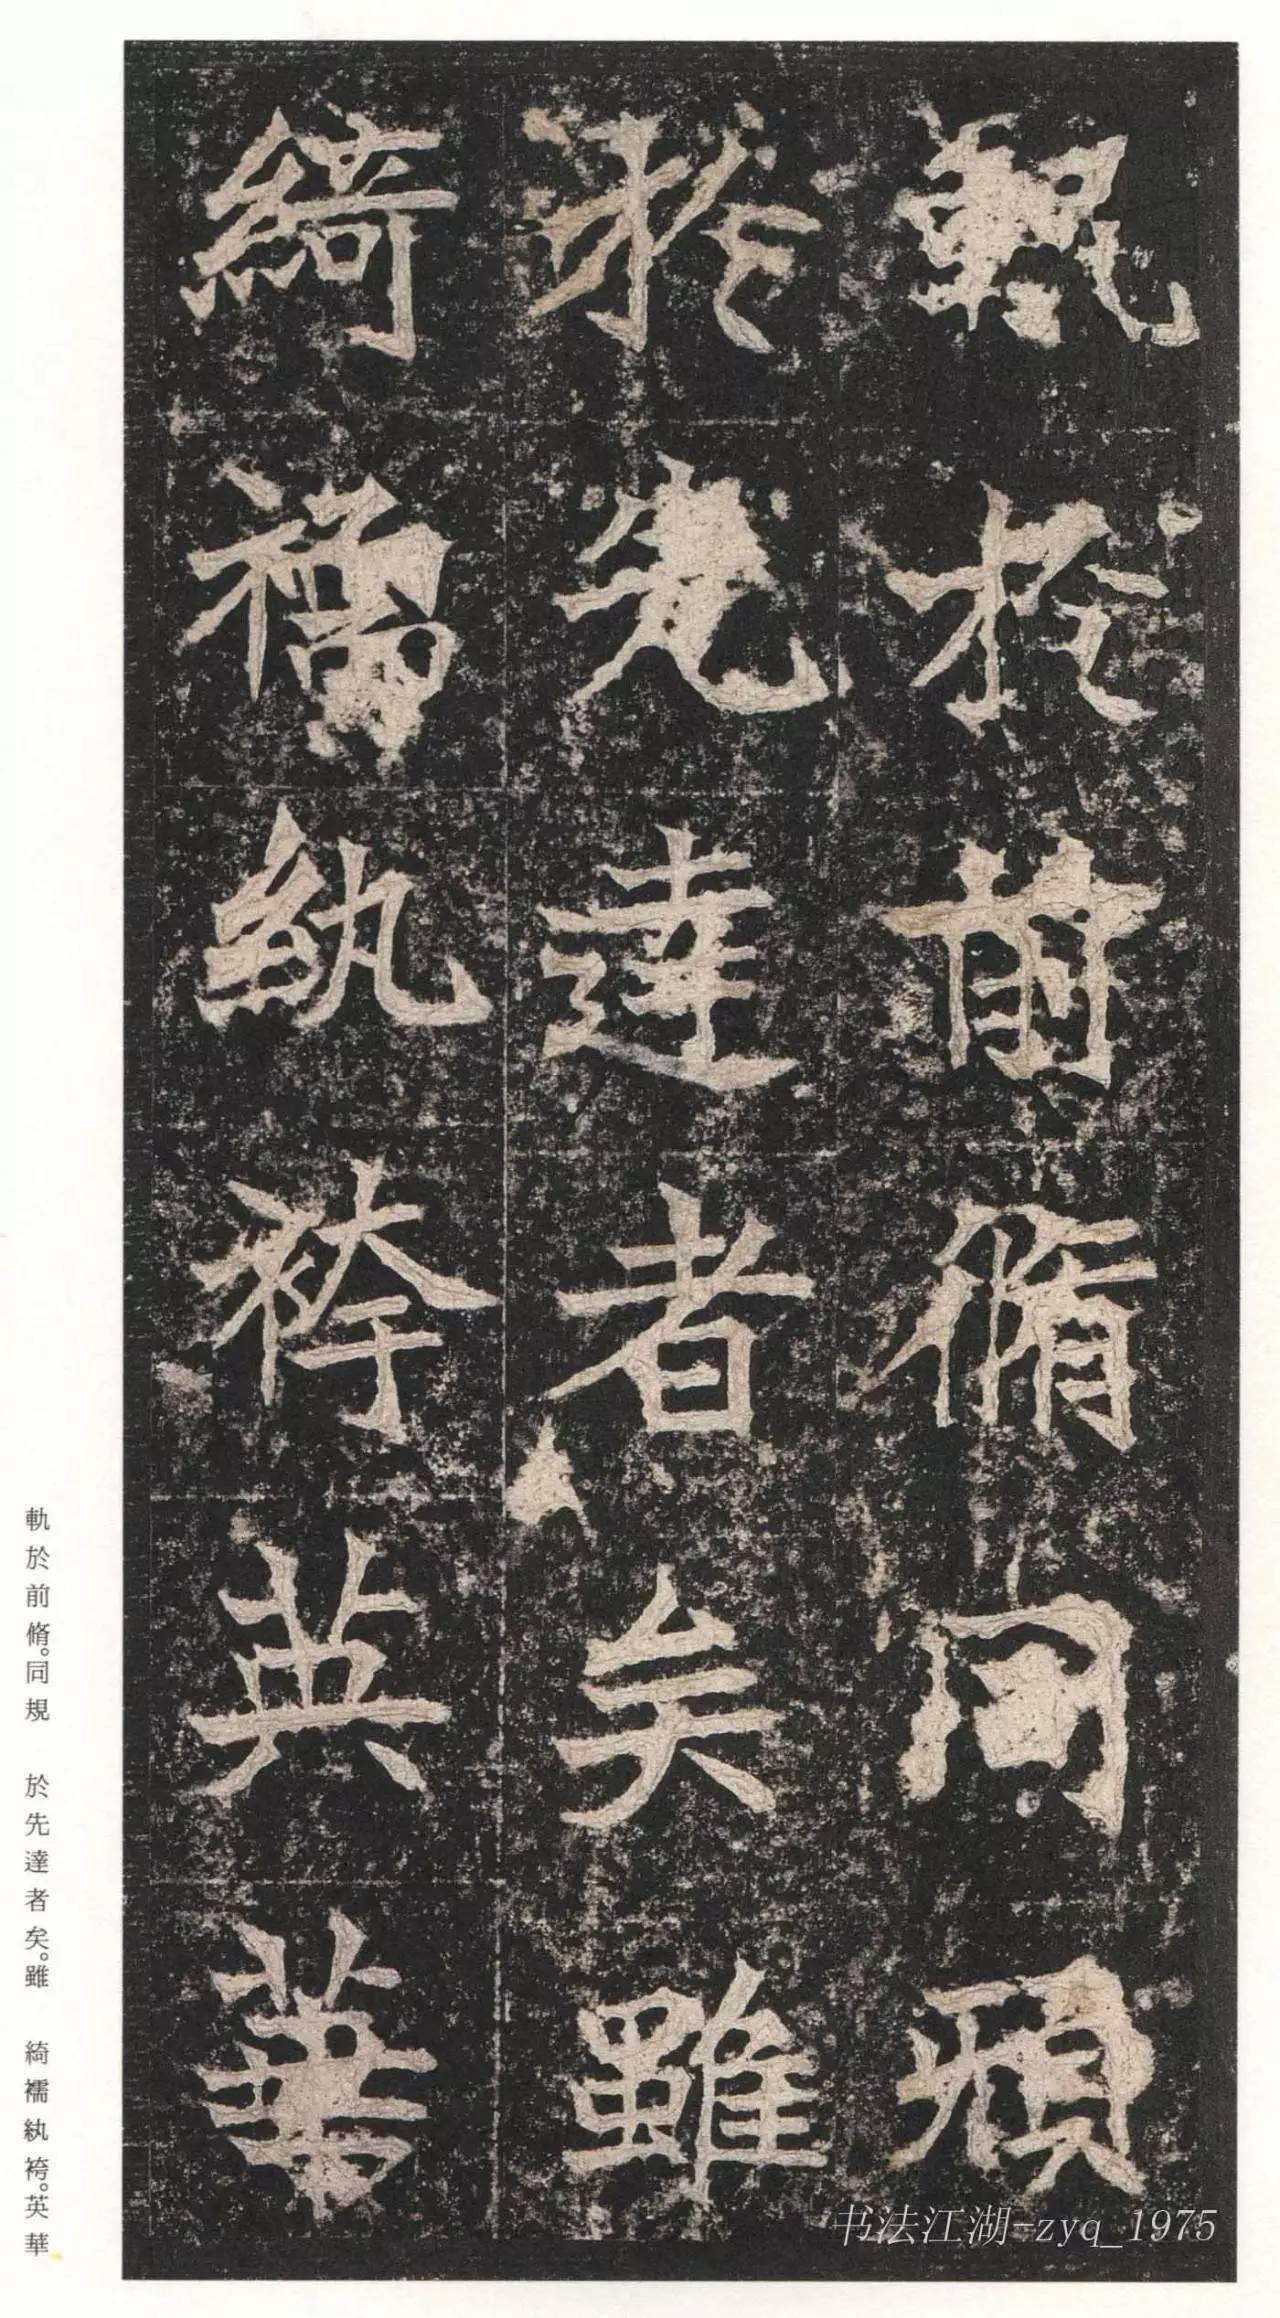 軌於前脩同規
於先達者矣雖
綺襦紈袴英華
軌於前脩。同規 於先達者矣。雖 綺襦紈袴。英華
书法江湖-zyq_1975